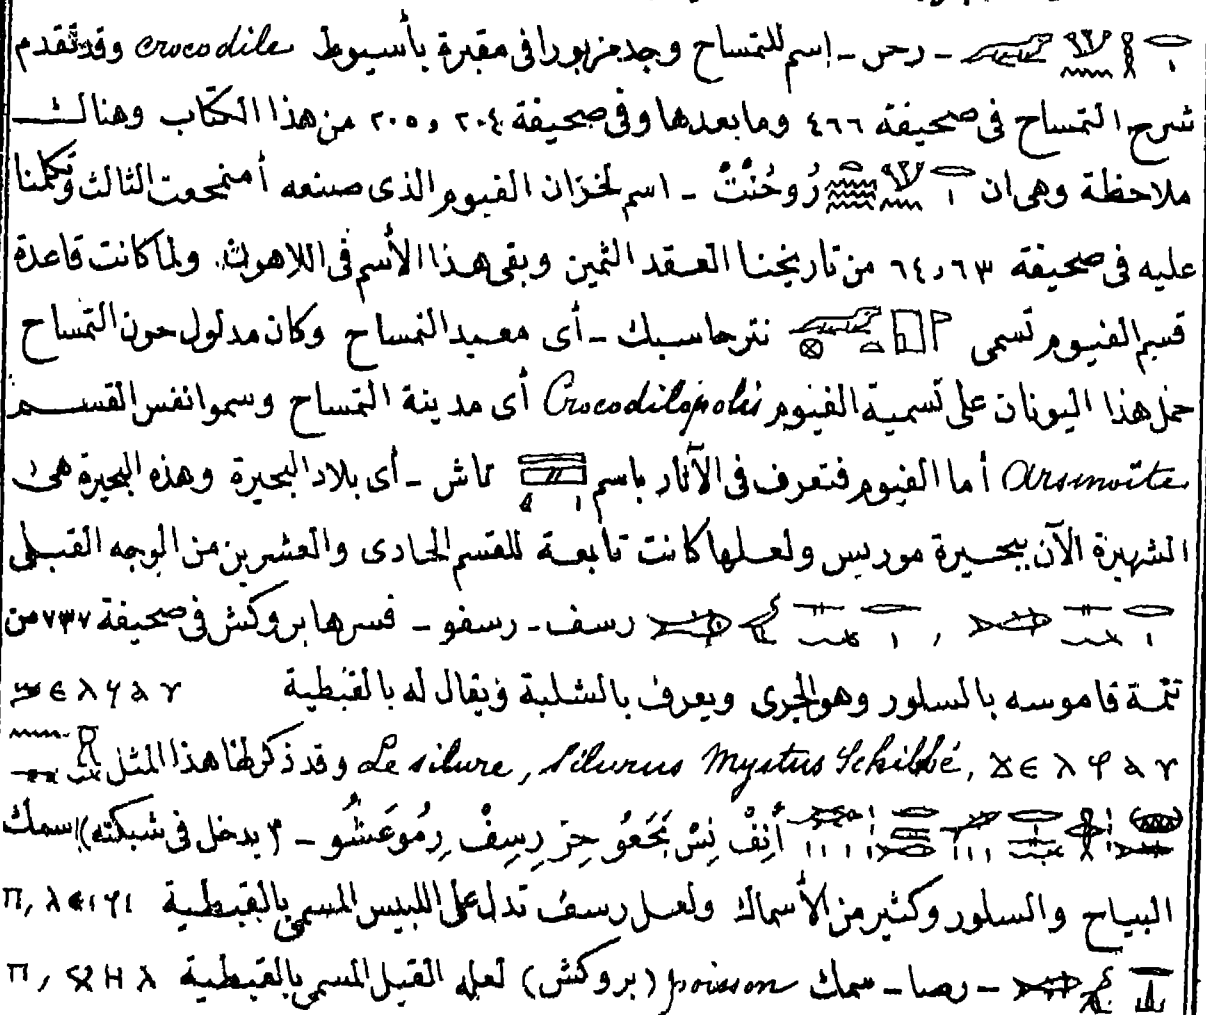 - رحن - إسم للتمساح وجد مزبورا فى مقبرة بأسيوط crocodile وقد تقدم
شرح التمساح فى صحيفة ٤٦٦ وما بعدها وفى صحيفة ٢٠٤ و ٢٠٥ من هذا الكتاب وهنالك
ملاحظة وهى ان رُوحُنْتْ - اسم لخزان الفيوم الذى صنعه أمنمحعت الثالث وتكلمنا
عليه فى صحيفة ٦٣ و ٦٤ من تاريخنا العقد الثمين وبقى هذا الأسم فى اللاهون. ولما كانت قاعدة
قسم الفيوم تسمى نترحاسبك - أى معبد التمساح وكان مدلول حون التمساح
حمل هذا اليونان على تسمية الفيوم Crocodilopolis أى مدينة التمساح وسموا نفس القسم
Arsinoïte أما الفيوم فتعرف فى الآثار باسم تاش - أى بلاد البحيرة وهذه البحيرة هى
الشهيرة الآن ببحيرة موريس ولعلها كانت تابعة للقسم الحادى والعشرين من الوجه القبلى
, رسف - رسفو - فسرها بروكش فى صحيفة ٧٣٧ من
تتمة قاموسه بالسلور وهو الجرى ويعرف بالشلبة ويقال له بالقبطية
Le silure, Silurus Mystus Schilbé, وقد ذكر لها هذا المثل
أَنِفْ نِسْ بَحَعُو حِرَ رِسِفْ رِمُو عَشُو - (يدخل فى شبكته) سمك
البياح والسلور وكثير من الأسماك ولعل رسف تدل على اللبيس المسمى بالقبطية
- رصا - سمك poisson (بروكش) لعله القيل المسمى بالقبطية